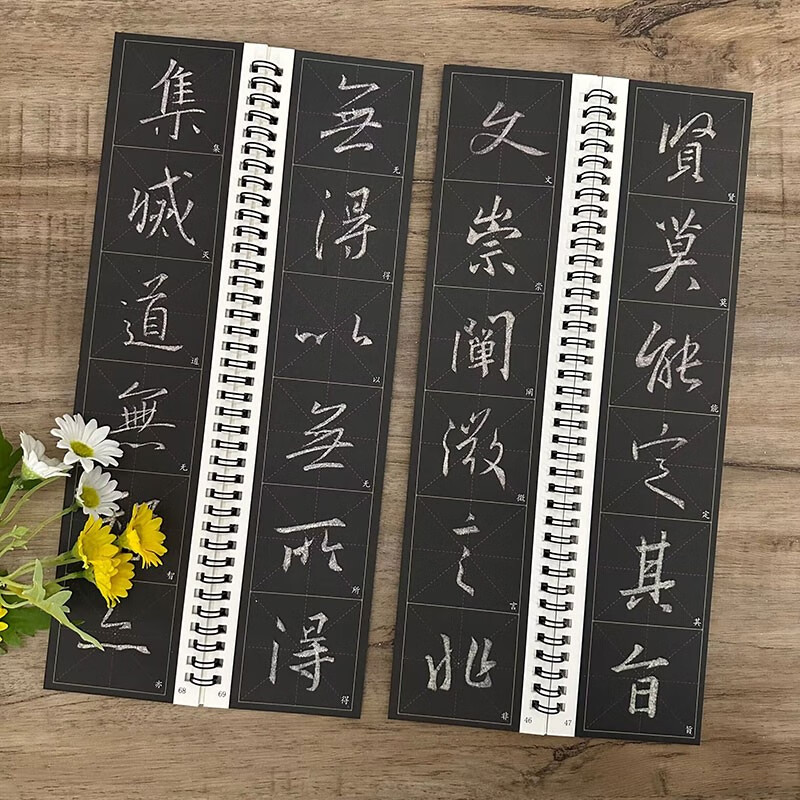 集滅道無亦
集
灭
道
无
智
亦
68
無得以無所得
无
得
以
无
所
得
69
文崇闡微言非
文
崇
阐
微
言
非
46
賢莫能定其旨
贤
莫
能
定
其
旨
47